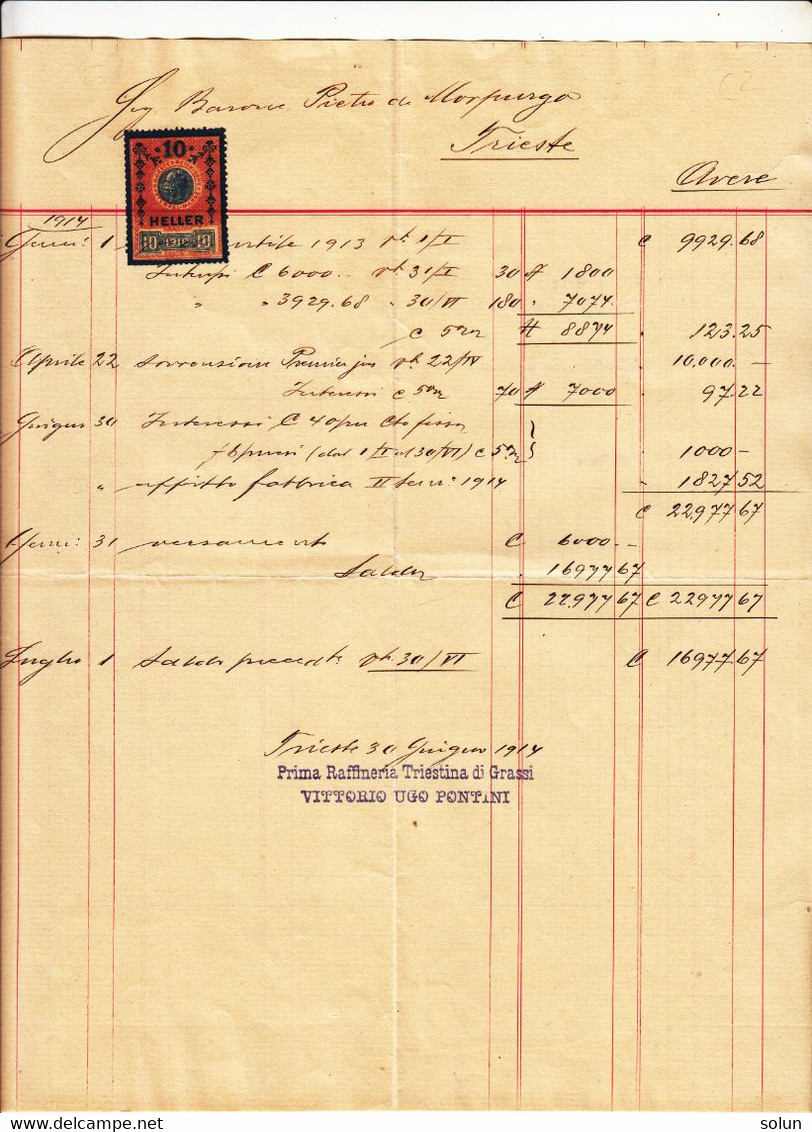 Sig. Barone Pietro de Morpurgo
Trieste
Avere
10
HELLER
10 1910 10
1914
Genn: 1 1913 vt. 1/I C 9929.68
Interessi C 6000.- vt 31/I 30 # 1800
" " 3929.68 " 30/VI 180 " 7074.
C 5 # 8874 " 123.25
Aprile 22 sovvensione vt 22/IV " 10,000.-
Interessi C 5 70 # 7000 " 97.22
Giugno 30 Interessi C 40 per Cto fisso
(dal 1/I al 30/VI) C 5 " 1000-
" affitto fabbrica II Sem: 1914 " 1827 52
C 22,977 67
Genn: 31 versamento C 6000.-
Saldo . 16977 67
C 22,977 67 C 22977 67
Luglio 1 Saldo precedte vt. 30/VI C 16977.67
Trieste 30 Giugno 1914
Prima Raffineria Triestina di Grassi
VITTORIO UGO PONTINI
delcampe.net
solun